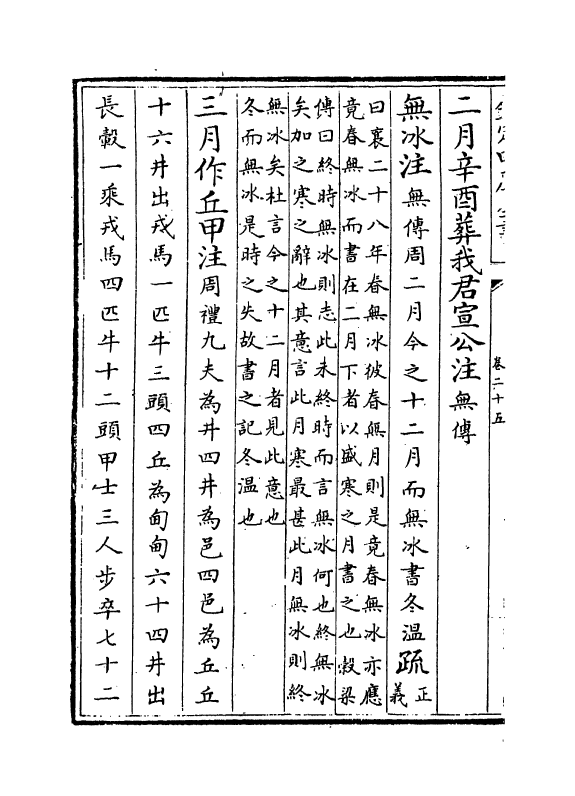 卷二十五
二月辛酉葬我君宣公注無傳
無冰注無傳周二月今之十二月而無冰書冬溫疏正義
曰襄二十八年春無冰彼春無月則是竟春無冰亦應
竟春無冰而書在二月下者以盛寒之月書之也穀梁
傳曰終時無冰則志此未終時而言無冰何也終無冰
矣加之寒之辭也其意言此月寒最甚此月無冰則終
無冰矣杜言今之十二月者見此意也
冬而無冰是時之失故書之記冬溫也
三月作丘甲注周禮九夫為井四井為邑四邑為丘丘
十六井出戎馬一匹牛三頭四丘為甸甸六十四井出
長轂一乘戎馬四匹牛十二頭甲士三人步卒七十二